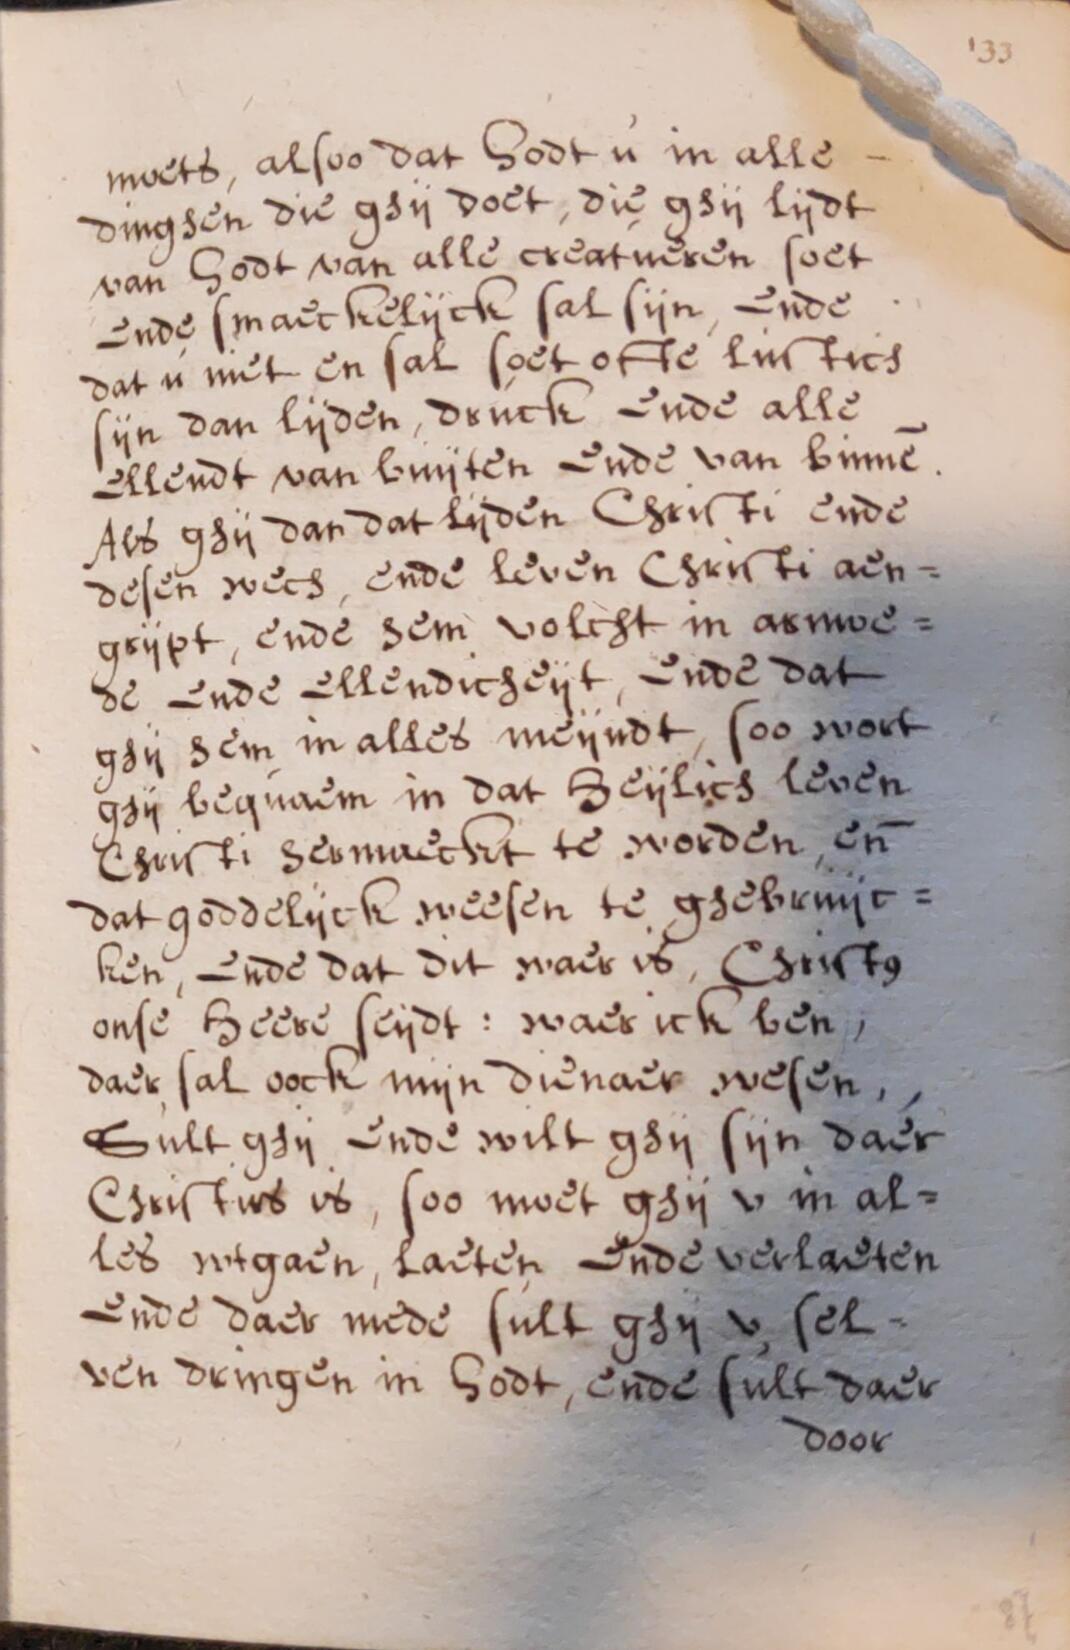 133
moets, alsoo dat Godt ú in alle -
dinghen die ghij doet, die ghij lijdt
van Godt van alle creatueren soet
Ende smaeckelijck sal sijn, Ende
dat ú niet en sal soet ofte lustich
sijn dan lijden, drúck Ende alle
Ellendt van buijten Ende van binnē.
Als ghij dan dat lijden Christi ende
desen wech, ende leven Christi aen=
grijpt, ende hem volcht in armoe=
de Ende Ellendicheijt, Ende dat
ghij hem in alles meijndt, soo wort
ghij bequaem in dat Heijlich leven
Christi hermaeckt te worden, en̄
dat goddelijck weesen te ghebruijc=
ken, Ende dat dit waer is, Christꝰ
onse Heere seijdt: waer ick ben,
daer sal oock mijn dienaer wesen,,
Sult ghij Ende wilt ghij sijn daer
Christus is, soo moet ghij v in al=
les wtgaen, laeten Ende verlaeten
Ende daer mede sult ghij v sel-
ven dringen in Godt, ende sult daer
door